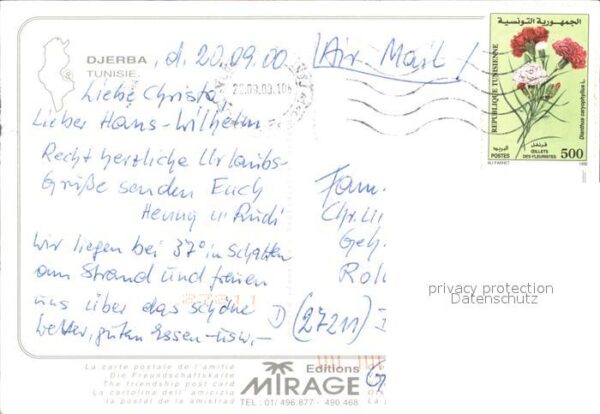 DJERBA
TUNISIE.
d. 20.09.00
Air Mail!
20.09.00.10
Liebe Christa,
Lieber Hans-Wilhelm -
Recht herzliche Urlaubs-
Grüße senden Euch
Henny u. Rudi
Wir liegen bei 37° im Schatten
am Strand und freuen
uns über das schöne
Wetter, guten Essen - usw. -
Fam.
D (27211)
الجمهورية التونسية
REPUBLIQUE TUNISIENNE
Dianthus caryophyllus L.
قرنفل
البريد
ŒILLETS
DES FLEURISTES
POSTES
500
privacy protection
Datenschutz
La carte postale de l'amitié
Die Freundschaftskarte
The friendship post card
La cartolina dell'amicizia
la postal de la amistad
Editions
MIRAGE
TEL: 01/ 496.877 - 490.468